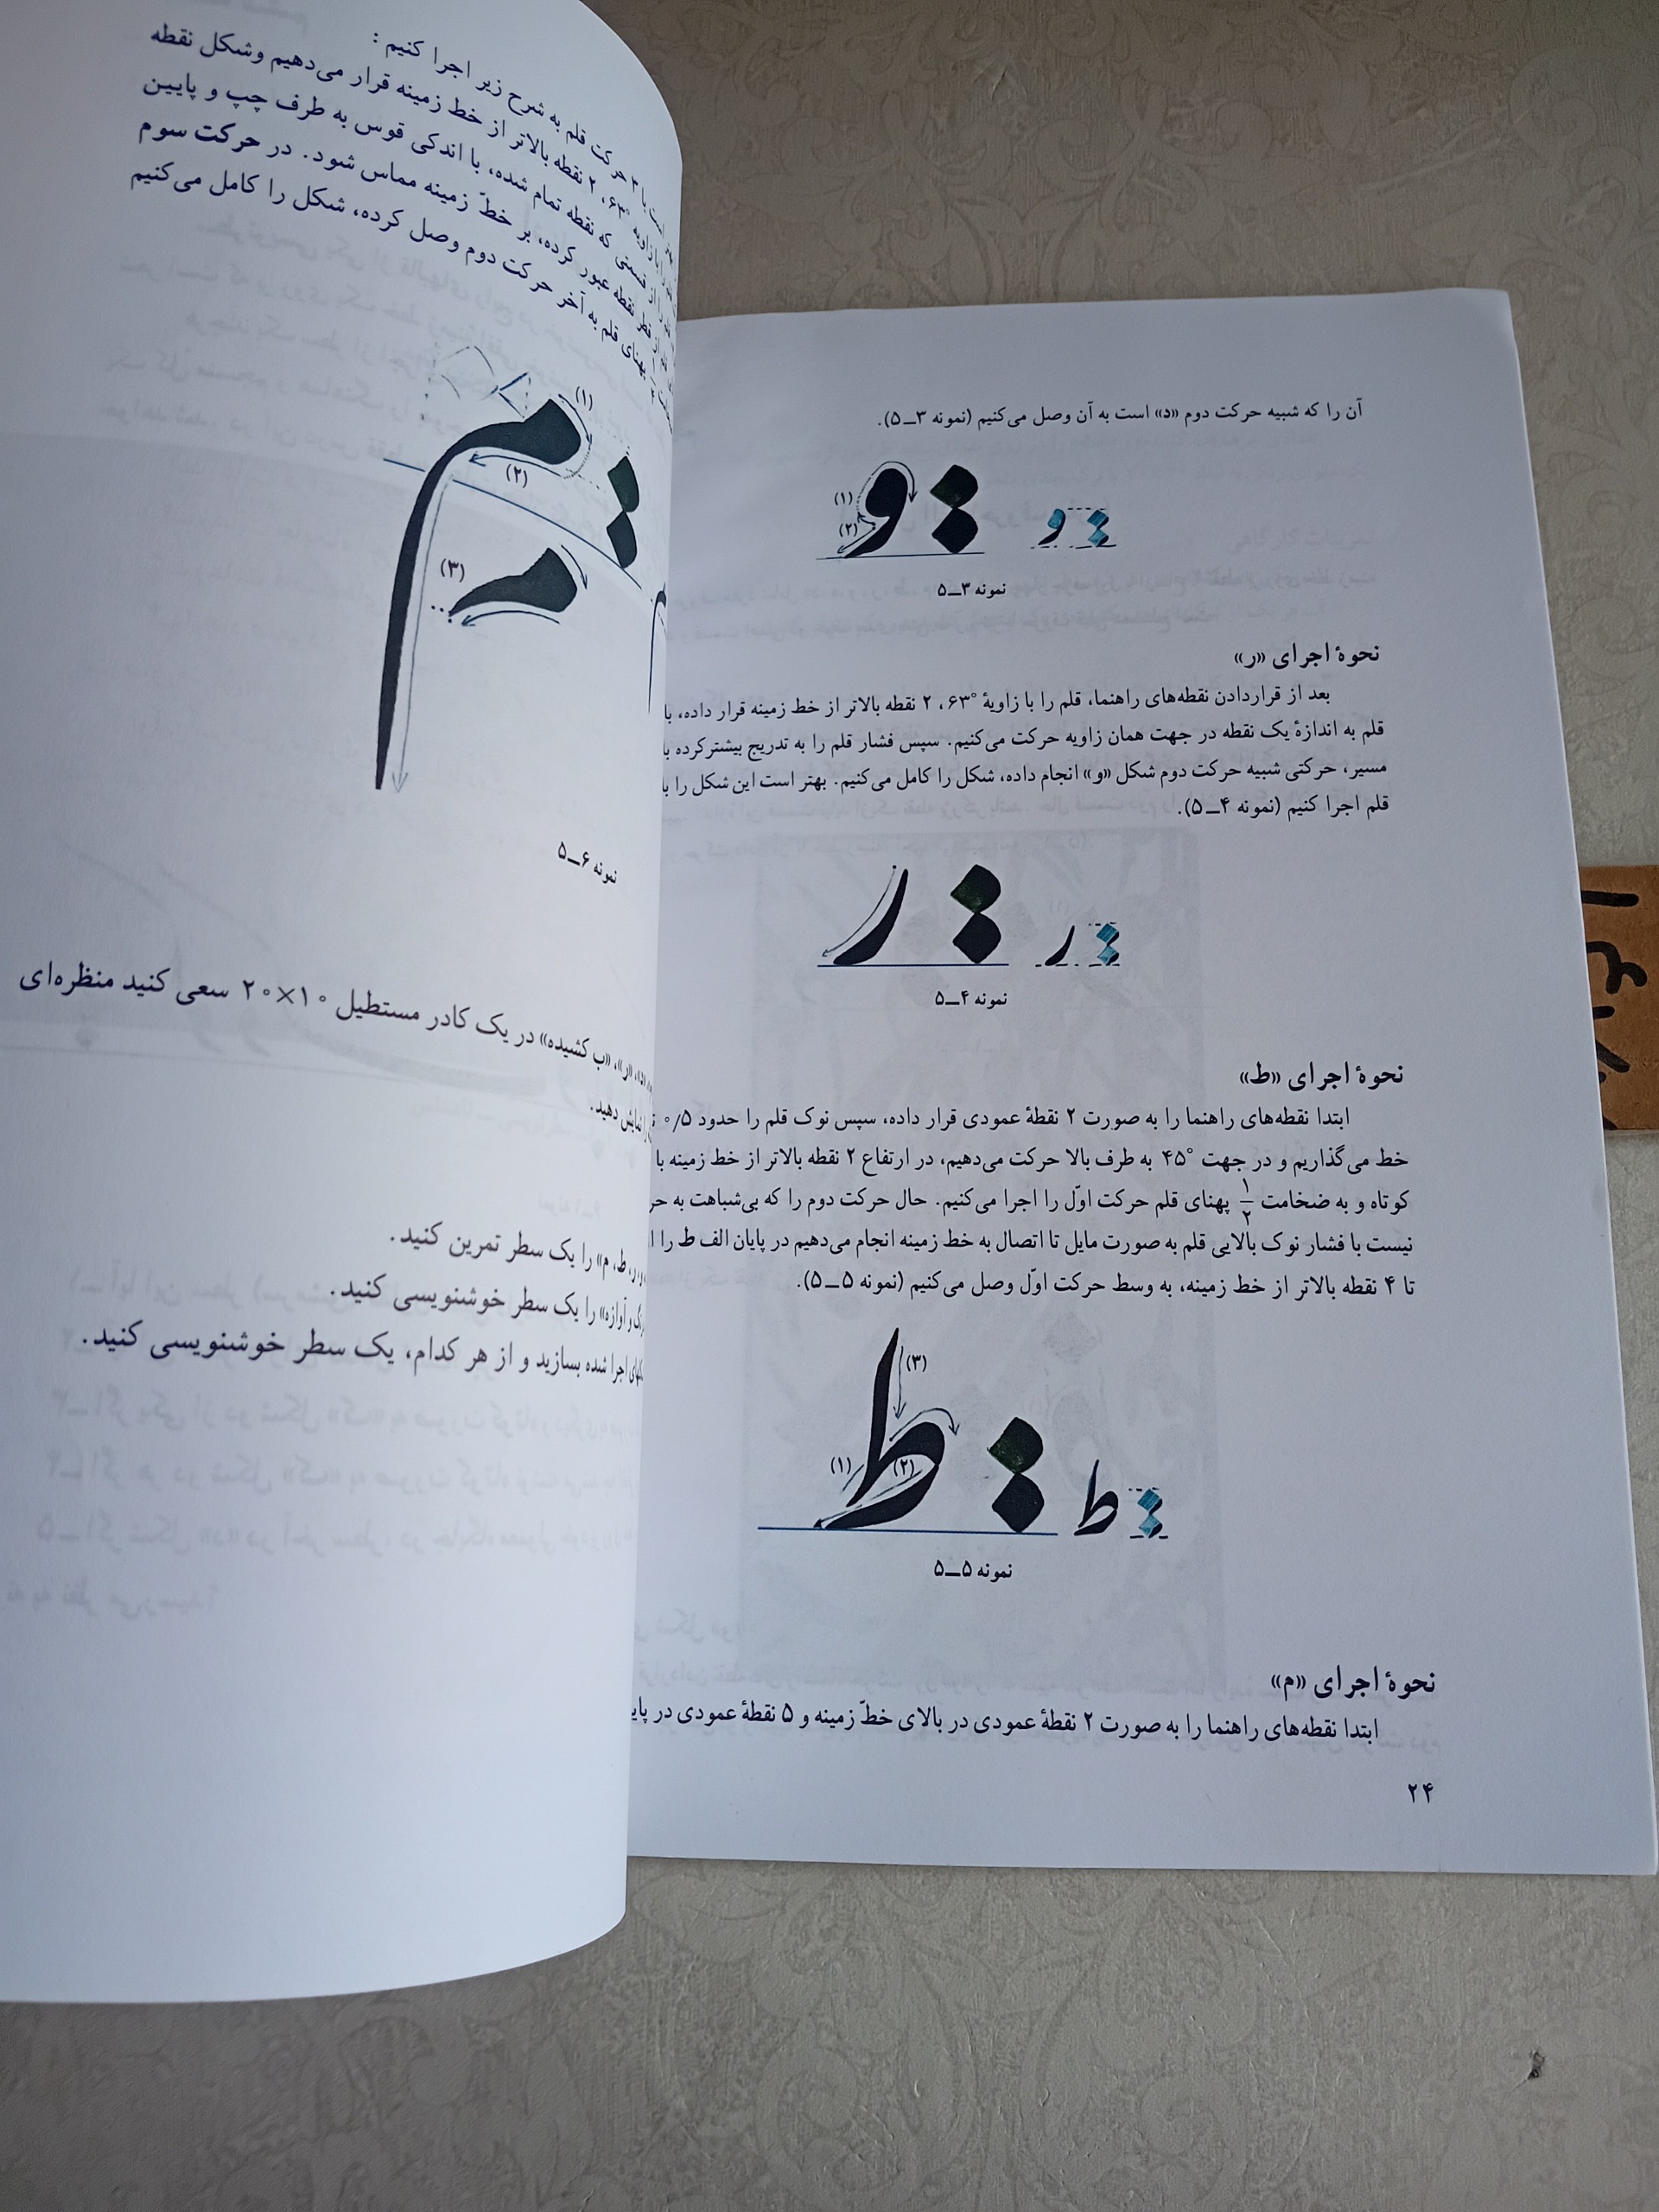 آن را که شبیه حرکت دوم «د» است به آن وصل می‌کنیم (نمونه ۳ــ۵).
(۱)
(۲)
و
و
نمونه ۳ــ۵
نحوهٔ اجرای «ر»
بعد از قراردادن نقطه‌های راهنما، قلم را با زاویهٔ °۶۳، ۲ نقطه بالاتر از خط زمینه قرار داده، با
قلم به اندازهٔ یک نقطه در جهت همان زاویه حرکت می‌کنیم. سپس فشار قلم را به تدریج بیشترکرده با
مسیر، حرکتی شبیه حرکت دوم شکل «و» انجام داده، شکل را کامل می‌کنیم. بهتر است این شکل را با
قلم اجرا کنیم (نمونه ۴ــ۵).
ر
ر
نمونه ۴ــ۵
نحوهٔ اجرای «ط»
ابتدا نقطه‌های راهنما را به صورت ۲ نقطهٔ عمودی قرار داده، سپس نوک قلم را حدود ۰/۵
خط می‌گذاریم و در جهت °۴۵ به طرف بالا حرکت می‌دهیم، در ارتفاع ۲ نقطه بالاتر از خط زمینه با
کوتاه و به ضخامت ۱/۲ پهنای قلم حرکت اوّل را اجرا می‌کنیم. حال حرکت دوم را که بی‌شباهت به
نیست با فشار نوک بالایی قلم به صورت مایل تا اتصال به خط زمینه انجام می‌دهیم در پایان الف ط را
تا ۴ نقطه بالاتر از خط زمینه، به وسط حرکت اوّل وصل می‌کنیم (نمونه ۵ــ۵).
(۳)
(۱)
(۲)
ط
ط
نمونه ۵ــ۵
نحوهٔ اجرای «م»
ابتدا نقطه‌های راهنما را به صورت ۲ نقطهٔ عمودی در بالای خطّ زمینه و ۵ نقطهٔ عمودی در
۲۴
با ۳ حرکت قلم به شرح زیر اجرا کنیم :
زاویه °۶۳، ۲ نقطه بالاتر از خط زمینه قرار می‌دهیم وشکل نقطه
را از قسمتی که نقطه تمام شده، با اندکی قوس به طرف چپ و پایین
از قطر نقطه عبور کرده، بر خطّ زمینه مماس شود. در حرکت سوم
پهنای قلم به آخر حرکت دوم وصل کرده، شکل را کامل می‌کنیم
(۱)
(۲)
(۳)
م
نمونه ۶ــ۵
«ر»، «ب کشیده» در یک کادر مستطیل ۱۰×۲۰ سعی کنید منظره‌ای
را نمایش دهید.
و، ر، ط، م» را یک سطر تمرین کنید.
و آوازه» را یک سطر خوشنویسی کنید.
اجرا شده بسازید و از هر کدام، یک سطر خوشنویسی کنید.